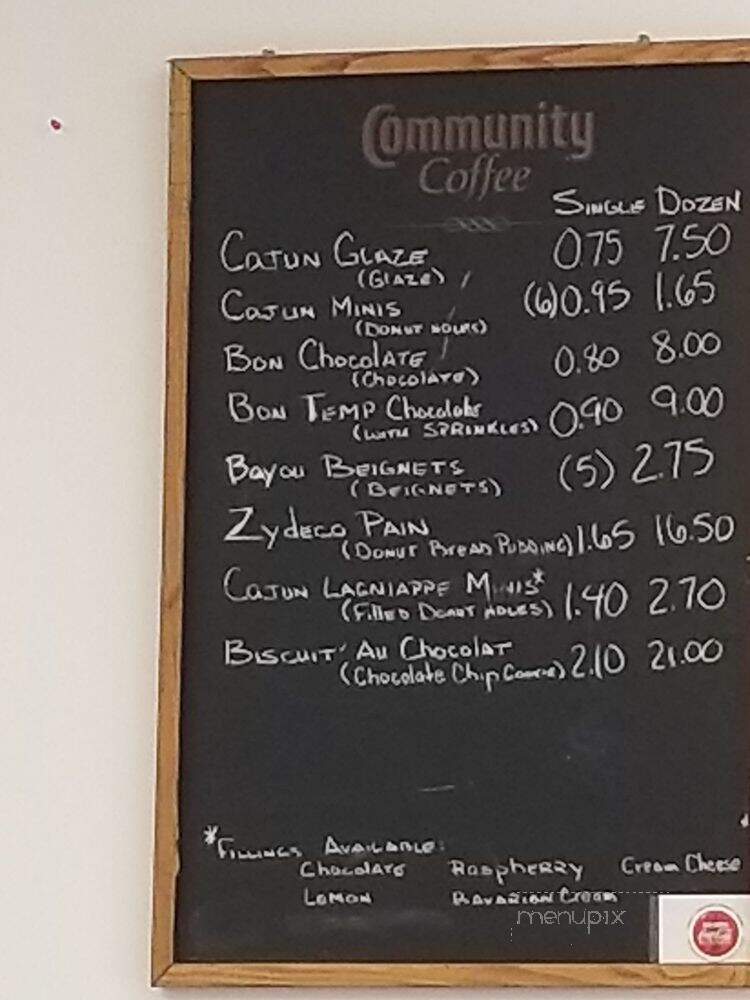 Community
Coffee
SINGLE DOZEN
CAJUN GLAZE 075 7.50
(GLAZE)
CAJUN MINIS (6)0.95 1.65
(DONUT HOLES)
BON CHOCOLATE 0.80 8.00
(CHOCOLATE)
BON TEMP Chocolate 0.90 9.00
(WITH SPRINKLES)
BAYOU BEIGNETS (5) 2.75
(BEIGNETS)
ZYDECO PAIN 1.65 16.50
(DONUT BREAD PUDDING)
CAJUN LAGNIAPPE MINIS* 1.40 2.70
(FILLED DONUT HOLES)
BISCUIT AU CHOCOLAT 2.10 21.00
(Chocolate Chip Cookie)
*FILLINGS AVAILABLE:
CHOCOLATE RASPBERRY CREAM CHEESE
LEMON BAVARIAN CREAM
menupix